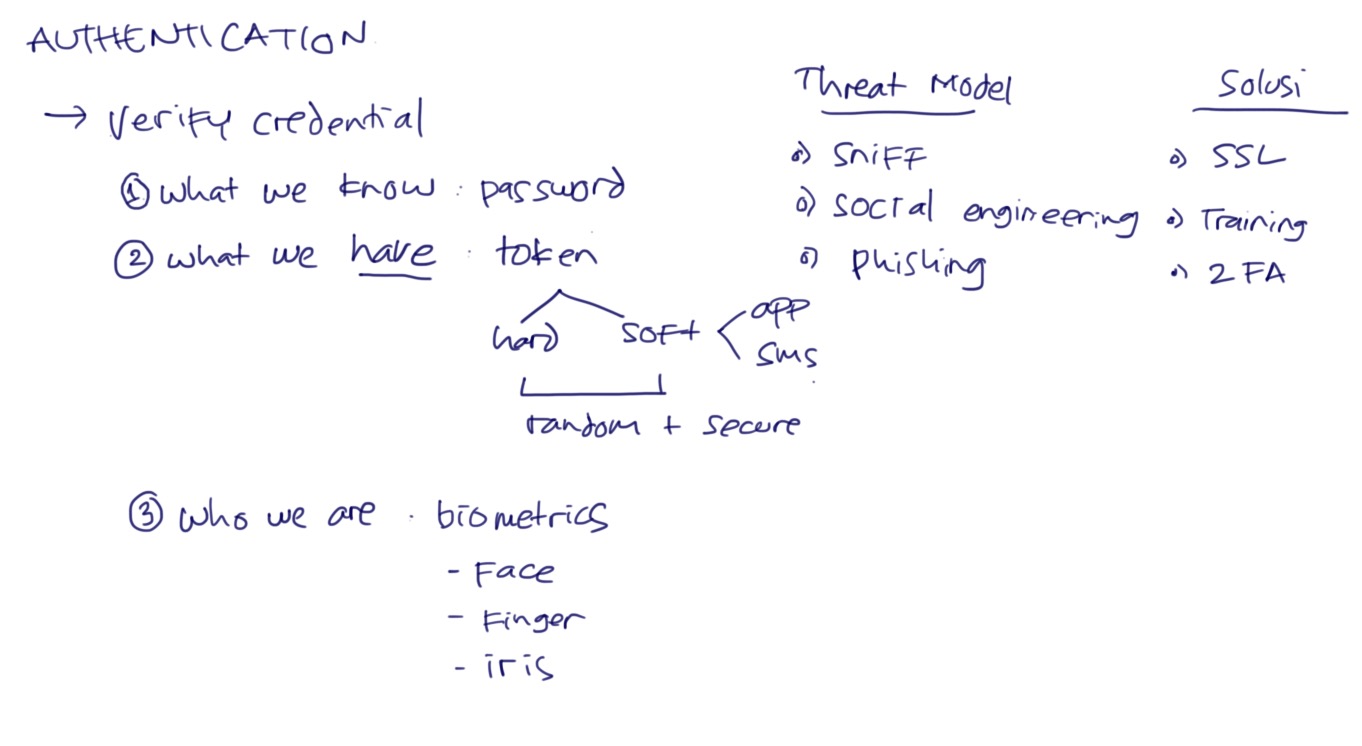 AUTHENTICATION
→ Verify credential
① what we know : password
② what we have : token
hard soft < app
sms
random + secure
③ who we are : biometrics
- Face
- Finger
- iris
Threat Model
o) Sniff
o) social engineering
o) Phishing
Solusi
o) SSL
o) Training
o) 2FA